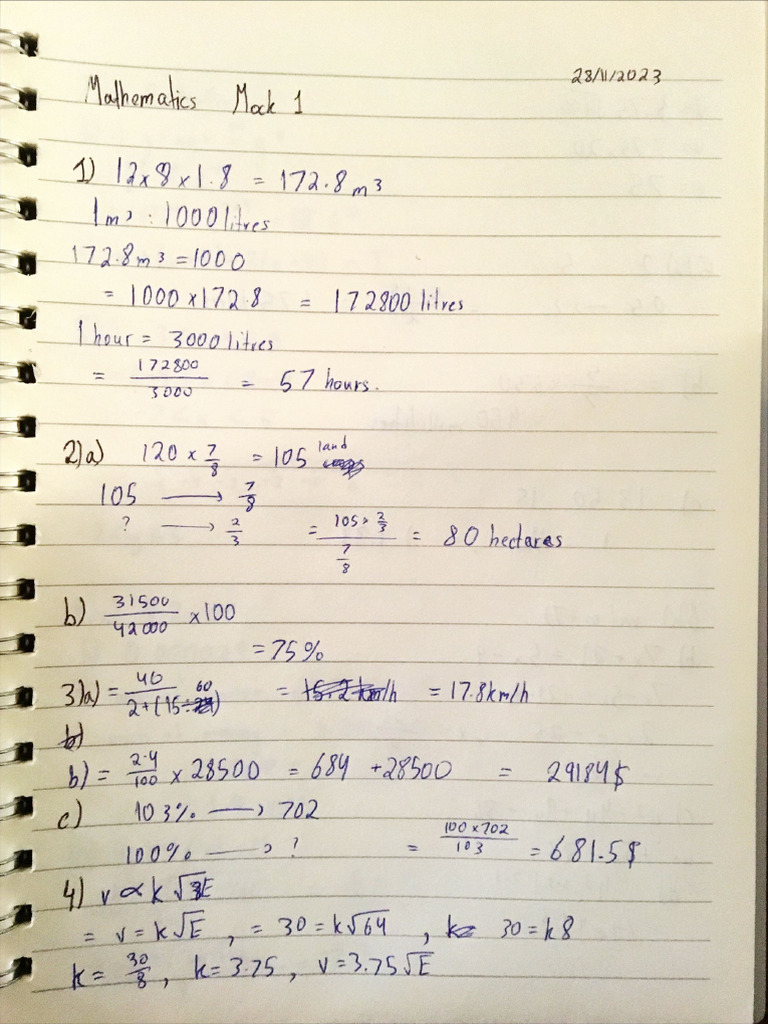 28/11/2023
Mathematics Mock 1
1) 12 x 8 x 1.8 = 172.8 m³
1 m³ : 1000 litres
172.8 m³ = 1000
= 1000 x 172.8 = 172800 litres
1 hour = 3000 litres
= 172800/3000 = 57 hours.
2)a) 120 x 7/8 = 105 land
105 → 7/8
? → 2/3 = (105 x 2/3)/(7/8) = 80 hectares
b) 31500/42000 x 100
= 75%
3)a) = 40/(2+(15÷60)) = 15.2 km/h = 17.8 km/h
b)
b) = 2.4/100 x 28500 = 684 + 28500 = 29184 $
c) 103% → 702
100% → ? = (100 x 702)/103 = 681.5 $
4) v ∝ k √E
= v = k√E , = 30 = k√64 , k= 30 = k8
k = 30/8 , k = 3.75 , v = 3.75√E